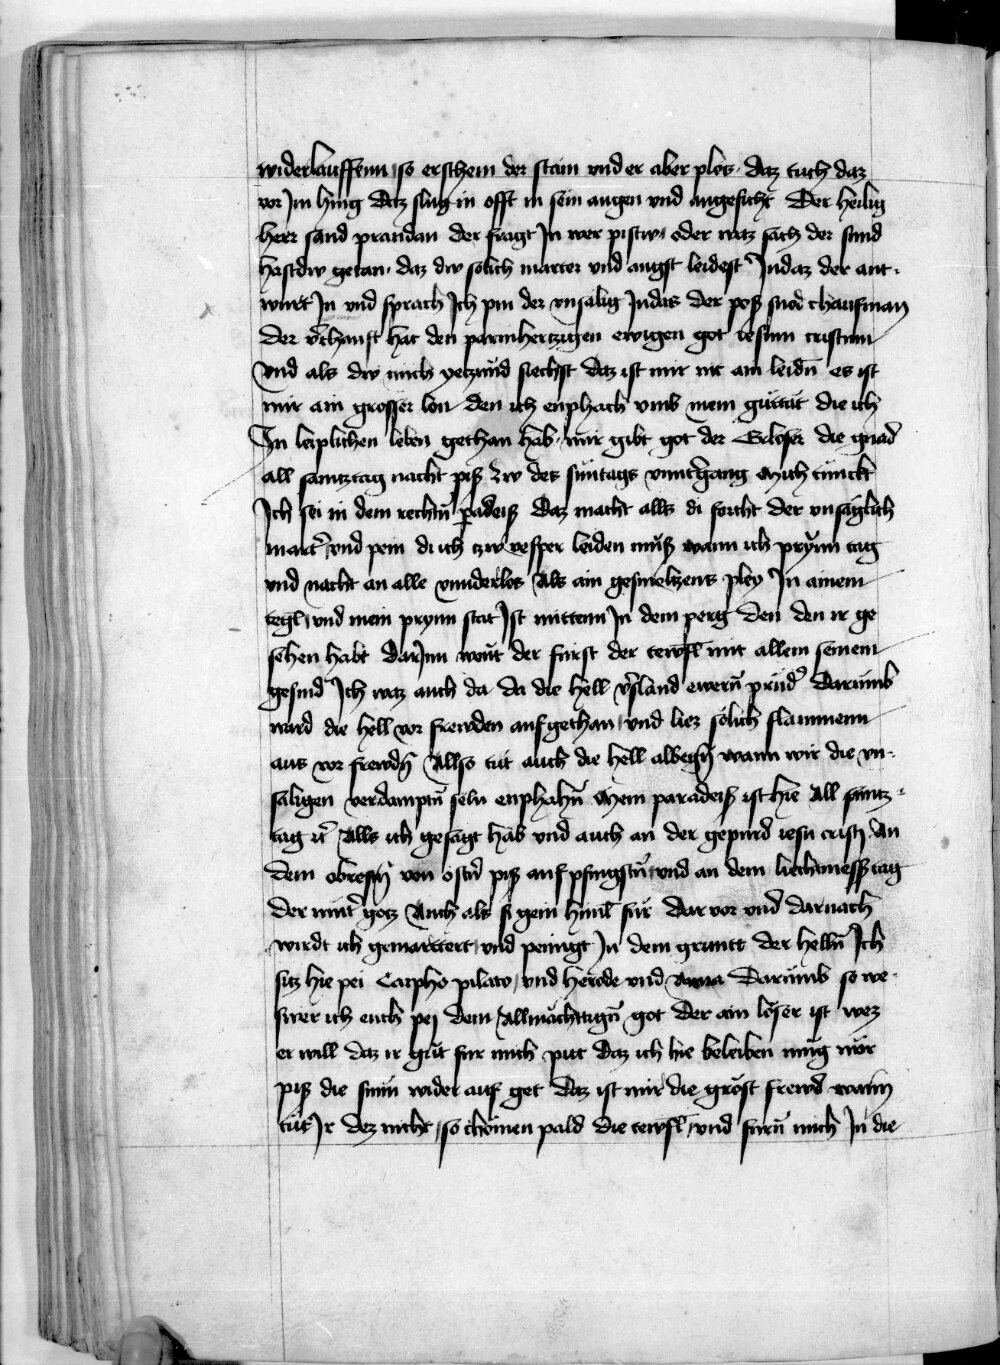 widerlauffenn so erschein der stain vnd er aber plos. daz tuch daz
vor Im hing Daz slug in offt in sein augen vnd angesicht Der heilig
herr sand prandan der fragt In wer pistw. oder waz sach der sund
hastdw getan. daz dw solich marter vnd angst leidest Judaz der ant.
wurt In vnd sprach Ich pin der vnsalig Judas der pos snod chaufman
der v̄chauft hat den parmhertzigen ewigen got iesum cristum
vnd als dw mich yetzund siechst daz ist mir nit ain leidn̄ es ist
mir ain grosser lon den ich enphach vmb mein guttat die ich
In leiplichen leben gethan hab. mir gibt got der Erloser die gnad
all samtztag nacht pisz zw des suntags vnnt̄gang Mich dunckt
Ich sei in dem rechtn̄ padeisz Daz macht alls di forcht der vnsaglich
mart̄ vnd pein di ich tzw vesper leiden musz wann ich prynn tag
vnd nacht an alle vnnderlos Als ain gesmeltzens pley In ainem
tegl vnd mein prynn stat Ist mittenn In dem perg den den ir ge
sehen habt Darinn wont der furst der tewfl mit allem seinem
gesind Ich waz auch da da die hell v̄sland ewern̄ prud̄ Darumb
ward die hell vor frewden aufgethan vnd liez solich flammenn
aus vor frewdn̄ Allso tut auch die hell albegn̄ wann wir die vn.
saligen verdamptn̄ seln enphahn̄ Mein paradeisz ist hie All samtz.
tag n̄ Alls ich gesagt hab vnd auch an der gepurd iesu cristi An
dem obrestn̄ von ostn̄ pisz auf pfingstn̄ vnd an dem liechtmessz tag
der mut̄ gotz Auch als si gein himl fur Dar vor vnd darnach
wirdt ich gemartert vnd peinigt In dem gruntt der helln̄ Ich
sitz hie pei Caypho pilato vnd herode vnd Anna Darumb so we.
swer ich euch pej dem Allmachttign̄ got der ain loser ist wez
er will daz ir got fur mich pitt Daz ich hie beleiben mug nur
pisz die sunn wider auf get Daz ist mir die grost frewd wann
tut Ir dez nicht so chomen pald die tewfl vnd furn̄ mich In die